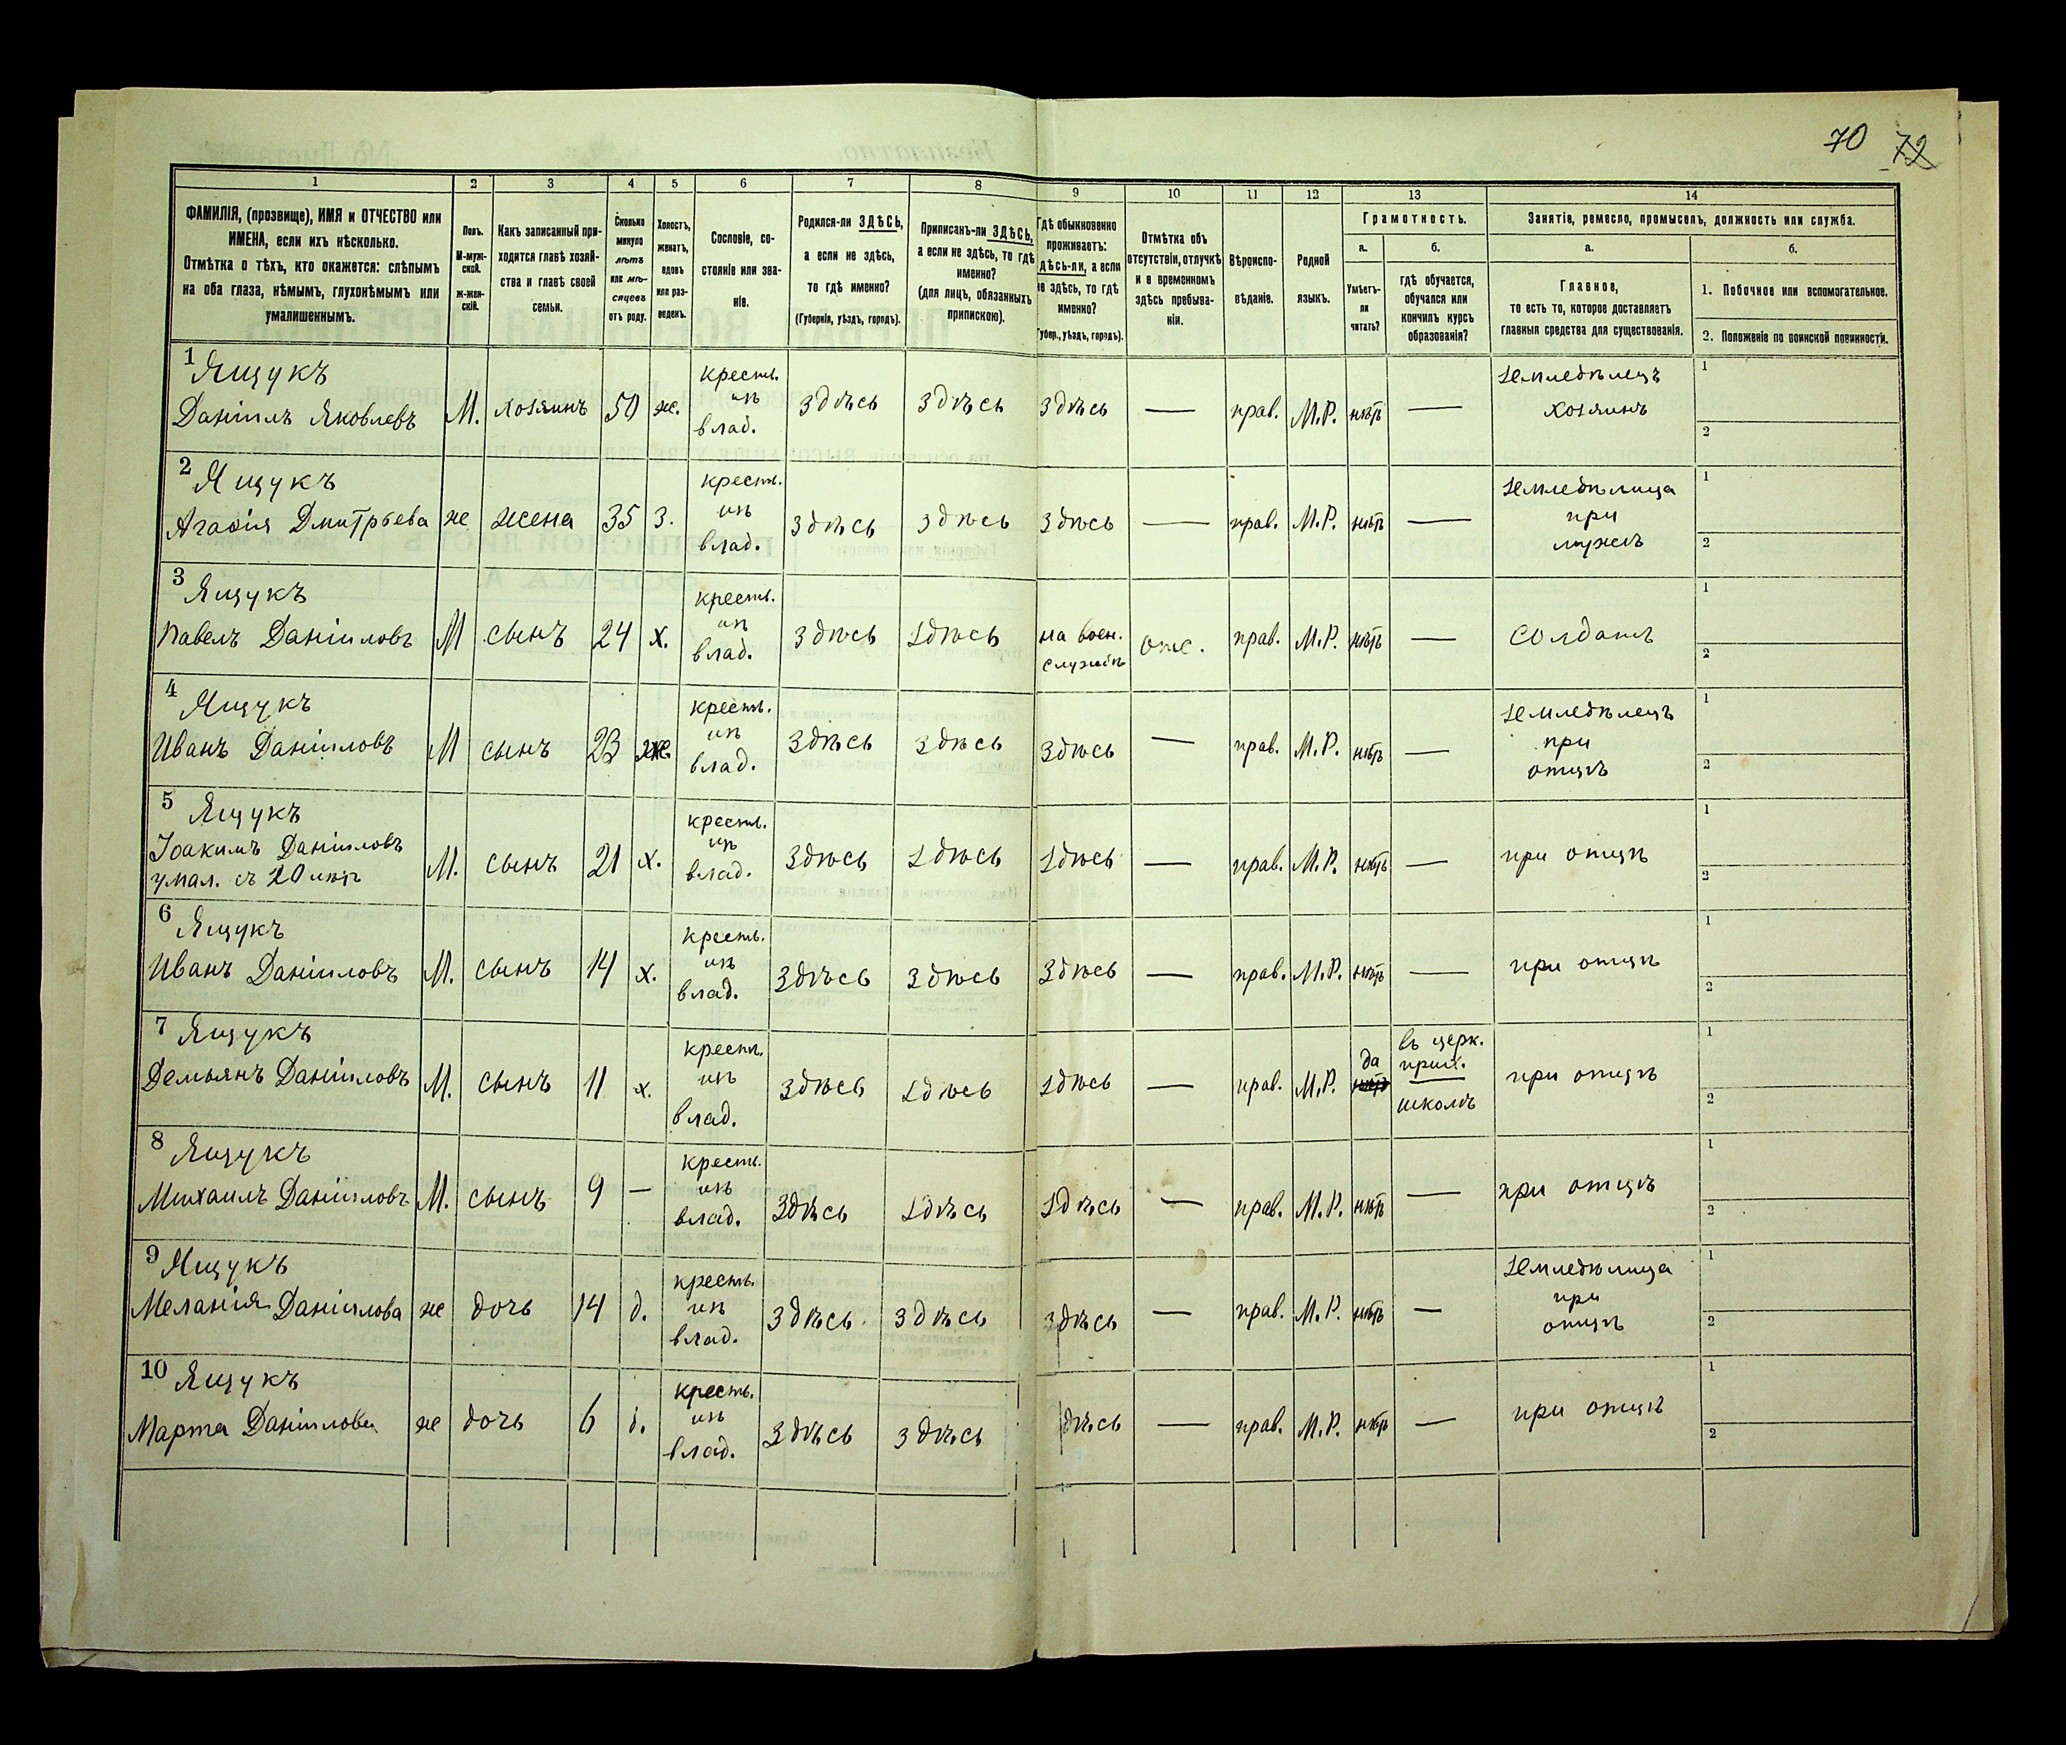 70 72
1
2
3
4
5
6
7
8
9
10
11
12
13
14
ФАМИЛІЯ, (прозвище), ИМЯ и ОТЧЕСТВО или
ИМЕНА, если ихъ нѣсколько.
Отмѣтка о тѣхъ, кто окажется: слѣпымъ
на оба глаза, нѣмымъ, глухонѣмымъ или
умалишеннымъ.
Полъ.
М-муж-
ской.
ж-жен-
скій.
Какъ записанный при-
ходится главѣ хозяй-
ства и главѣ своей
семьи.
Сколько
минуло
лѣтъ
или мѣ-
сяцевъ
отъ роду.
Холостъ,
женатъ,
вдовъ
или раз-
веденъ.
Сословіе, со-
стояніе или зва-
ніе.
Родился-ли ЗДѢСЬ,
а если не здѣсь,
то гдѣ именно?
(Губернія, уѣздъ, городъ).
Приписанъ-ли ЗДѢСЬ,
а если не здѣсь, то гдѣ
именно?
(для лицъ, обязанныхъ
припискою).
Гдѣ обыкновенно
проживаетъ:
здѣсь-ли, а если
не здѣсь, то гдѣ
именно?
(Губер., уѣздъ, городъ).
Отмѣтка объ
отсутствіи, отлучкѣ
и о временномъ
здѣсь пребыва-
ніи.
Вѣроиспо-
вѣданіе.
Родной
языкъ.
Грамотность.
а.
Умѣетъ-
ли
читать?
б.
гдѣ обучается,
обучался или
кончилъ курсъ
образованія?
Занятіе, ремесло, промыселъ, должность или служба.
а.
Главное,
то есть то, которое доставляетъ
главныя средства для существованія.
б.
1. Побочное или вспомогательное.
2. Положеніе по воинской повинности.
1 Ящукъ
Даніилъ Яковлевъ М. хозяинъ 50 ж. крестьян. изъ влад. здѣсь здѣсь здѣсь — прав. М.Р. нѣтъ — земледѣлецъ хозяинъ 1 2
2 Ящукъ
Агафія Дмитрьева ж жена 35 з. крестьян. изъ влад. здѣсь здѣсь здѣсь — прав. М.Р. нѣтъ — земледѣлица при мужѣ 1 2
3 Ящукъ
Павелъ Даніиловъ М сынъ 24 х. крестьян. изъ влад. здѣсь здѣсь на воен. службѣ отс. прав. М.Р. нѣтъ — солдатъ 1 2
4 Ящукъ
Иванъ Даніиловъ М сынъ 23 ж. крестьян. изъ влад. здѣсь здѣсь здѣсь — прав. М.Р. нѣтъ — земледѣлецъ при отцѣ 1 2
5 Ящукъ
Іоакимъ Даніиловъ
умал. съ 20 лѣтъ М. сынъ 21 х. крестьян. изъ влад. здѣсь здѣсь здѣсь — прав. М.Р. нѣтъ — при отцѣ 1 2
6 Ящукъ
Иванъ Даніиловъ М. сынъ 14 х. крестьян. изъ влад. здѣсь здѣсь здѣсь — прав. М.Р. нѣтъ — при отцѣ 1 2
7 Ящукъ
Демьянъ Даніиловъ М. сынъ 11 х. крестьян. изъ влад. здѣсь здѣсь здѣсь — прав. М.Р. да нѣтъ въ церк. прих. школѣ при отцѣ 1 2
8 Ящукъ
Михаилъ Даніиловъ М. сынъ 9 — крестьян. изъ влад. здѣсь здѣсь здѣсь — прав. М.Р. нѣтъ — при отцѣ 1 2
9 Ящукъ
Меланія Даніилова ж дочь 14 д. крестьян. изъ влад. здѣсь здѣсь здѣсь — прав. М.Р. нѣтъ — земледѣлица при отцѣ 1 2
10 Ящукъ
Марта Даніилова ж дочь 6 д. крестьян. изъ влад. здѣсь здѣсь здѣсь — прав. М.Р. нѣтъ — при отцѣ 1 2